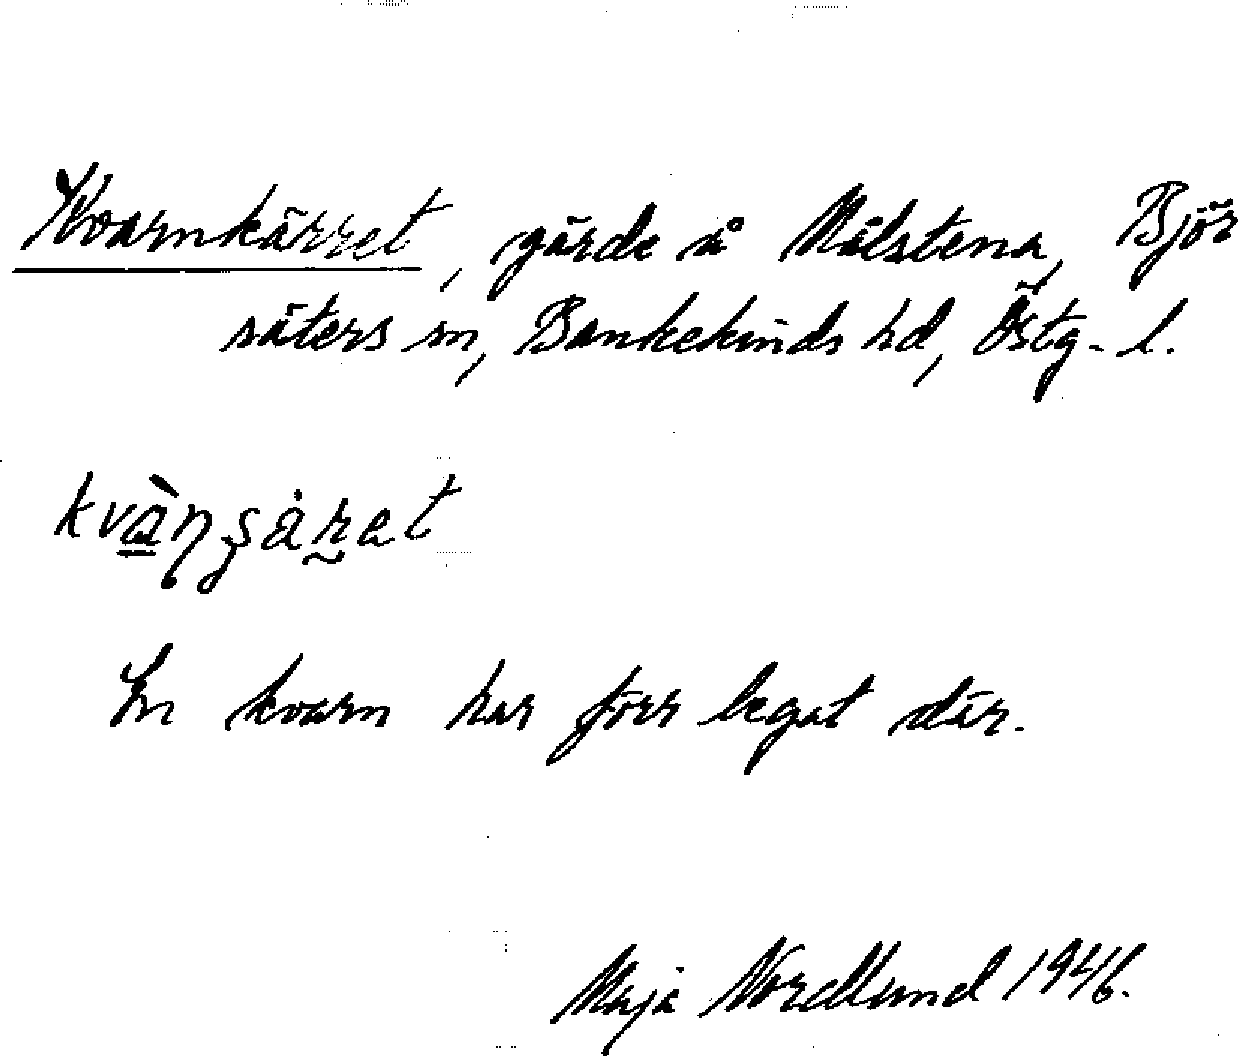 Kvarnkärret, gärde å Målstena, Björ
säters sn, Bankekinds hd, Östg. l.
kvàṉşȧret
En kvarn har förr legat där.
Maja Nordlund 1946.